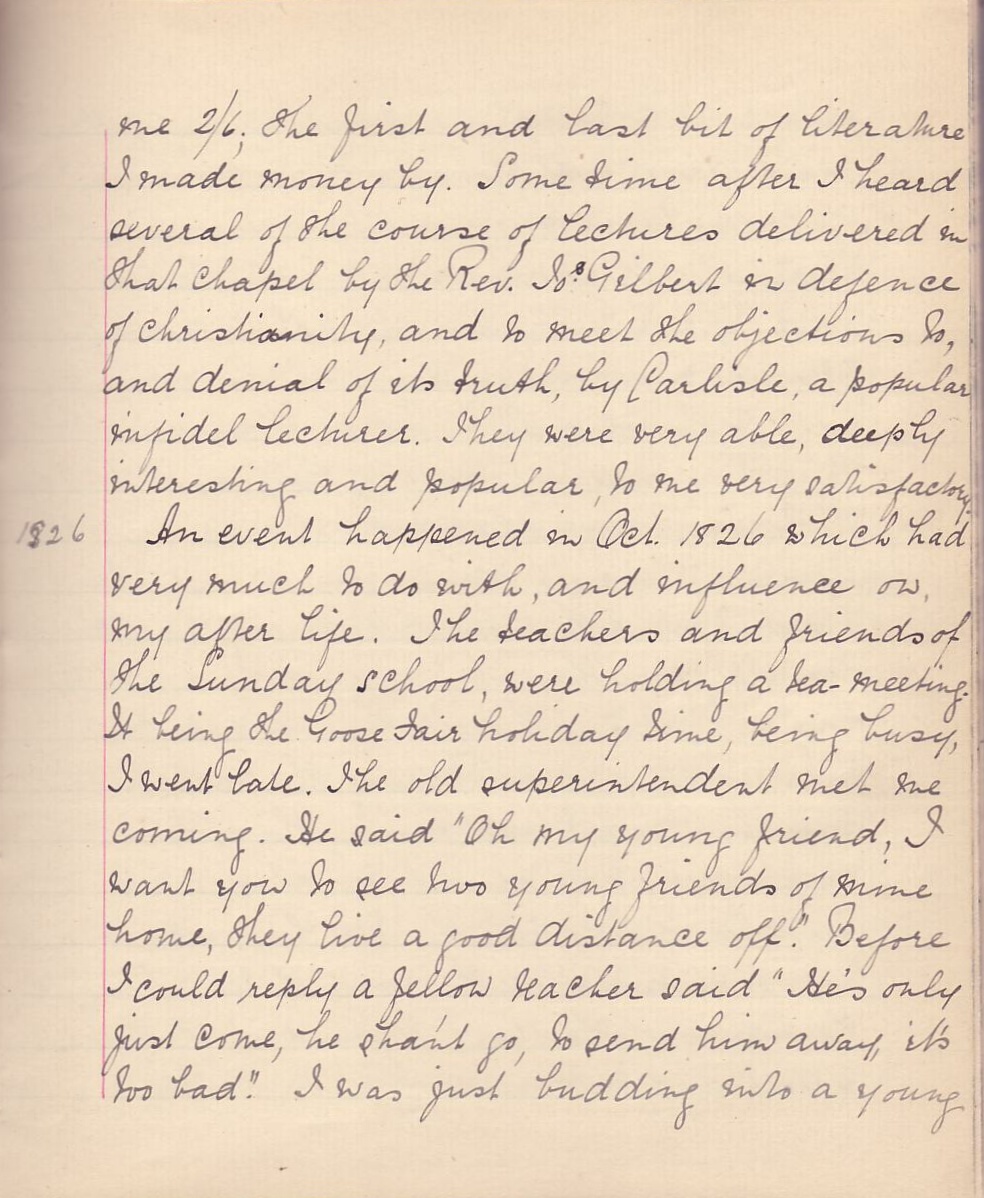 me 2/6; the first and last bit of literature
I made money by. Some time after I heard
several of the course of lectures delivered in
that chapel by the Rev. Jos. Gilbert in defence
of christianity, and to meet the objections to,
and denial of its truth, by Carlisle, a popular
infidel lecturer. They were very able, deeply
interesting and popular, to me very satisfactory.
1826 An event happened in Oct. 1826 which had
very much to do with, and influence on,
my after life. The teachers and friends of
the Sunday school, were holding a tea-meeting.
It being the Goose Fair holiday time, being busy,
I went late. The old superintendent met me
coming. He said "Oh my young friend, I
want you to see two young friends of mine
home, they live a good distance off". Before
I could reply a fellow teacher said "He's only
just come, he sha'nt go, to send him away, it's
too bad". I was just budding into a young